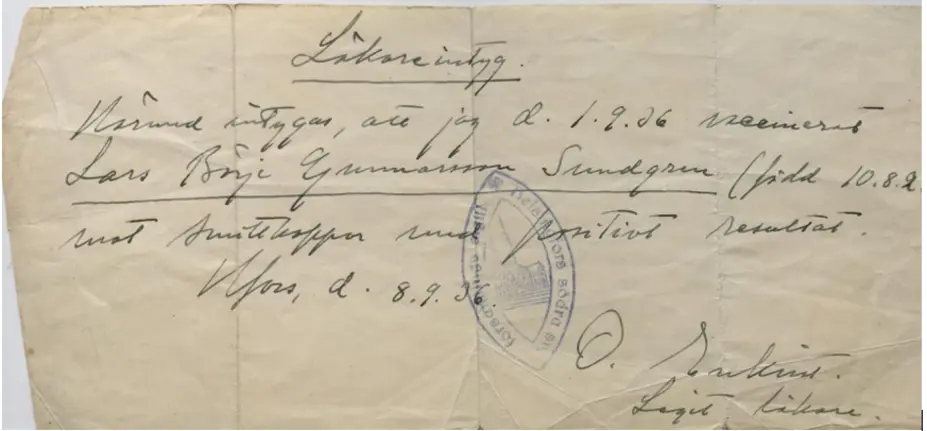 Läkareintyg.
Härmed intygas, att jag d. 1.9.36 vaccinerat
Lars Börje Gunnarsson Sundgren (född 10.8.2
mot smittkoppor med positivt resultat.
Hfors, d. 8.9.36.
Helsingfors södra sv.
O.
Legit. läkare.